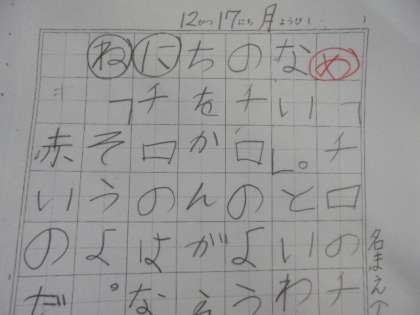 12がつ17にち月ようび(
め「チロのチ
ない」。といわ
のチロのよう
ちをかんがえ
にチロのはな
ね「そうよ。
赤いのだ
名まえ(